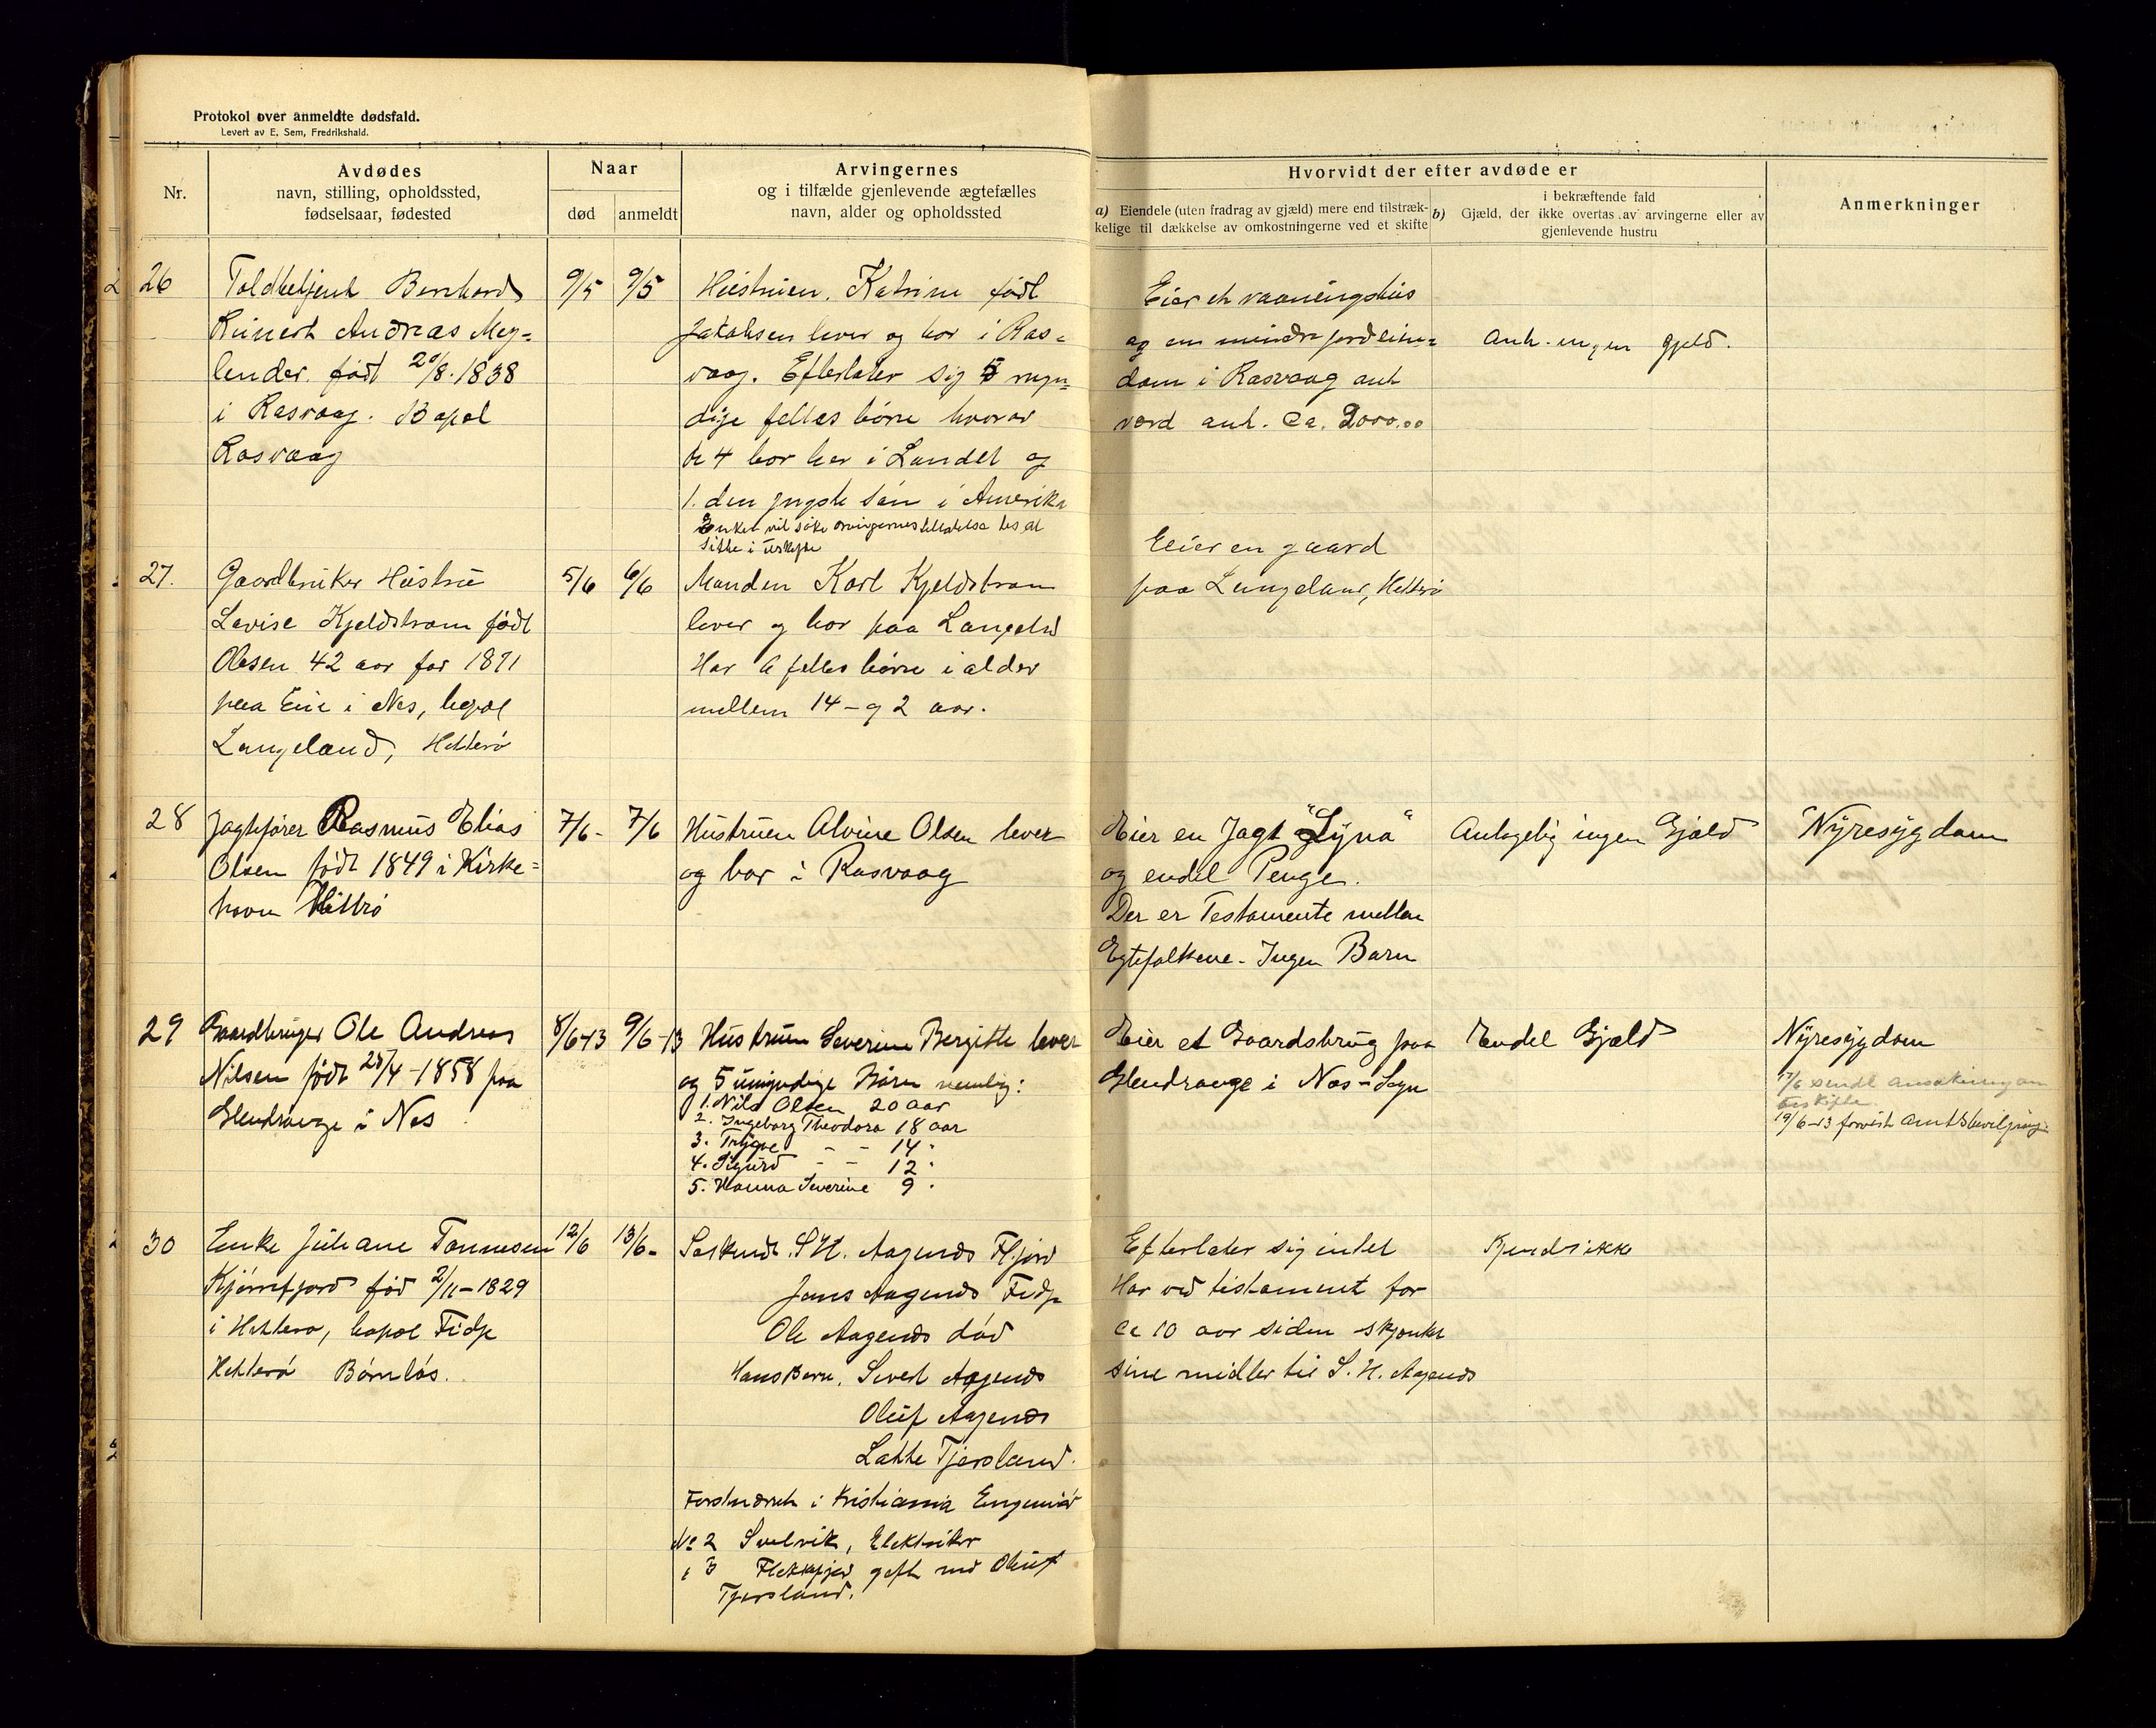 Protokol over anmeldte dødsfald.
Levert av E. Sem, Fredrikshald.
Nr.
Avdødes
navn, stilling, opholdssted,
fødselsaar, fødested
Naar
død
anmeldt
Arvingernes
og i tilfælde gjenlevende ægtefælles
navn, alder og opholdssted
Hvorvidt der efter avdøde er
a) Eiendele (uten fradrag av gjæld) mere end tilstræk-
kelige til dækkelse av omkostningerne ved et skifte
i bekræftende fald
b) Gjæld, der ikke overtas av arvingerne eller av
gjenlevende hustru
Anmerkninger
26
Toldbetjent Bernhard
Reinert Andreas Mey-
lender. født 20/8. 1838
i Rasvaag. Bopel
Rasvaag
9/5
9/5
Hustruen. Katrine født
Jakobsen lever og bor i Ras-
vaag. Efterlater sig 5 myn-
dige felles børn hvorav
de 4 bor her i Landet og
1. den yngste søn i Amerika
Enken vil søke arvingernes tilladelse til at
sitte i uskifte
Eier et vaaningshus
og en mindre jordeien-
dom i Rasvaag ant
verd ant. ca. 2000.00
Anh. ingen gjeld.
27.
Gaardbruker Hustru
Lovise Kjeldstram født
Olesen 42 aar før 1871
paa Eie i Nes, bopæl
Langeland, Hetterø
5/6
6/6
Manden Karl Kjeldstram
lever og bor paa Langeld
Har 6 felles børn i alder
mellem 14 - og 2 aar.
Eeier en gaard
paa Langeland, Hetterø
28
Jagtfører Rasmus Elias
Olsen født 1849 i Kirke-
havn Hitterø
7/6 -
7/6
Hustruen Alvine Olsen lever
og bor i Rasvaag
Eier en Jagt "Lyna"
og endel Penge.
Der er Testamente mellem
Egtefolkene - Ingen Barn
Antagelig ingen Gjæld
Nyresygdom
29
Gaardbruger Ole Andreas
Nilsen født 25/4 - 1858 paa
Glendrange i Nes
8/6-13
9/6-13
Hustruen Severine Bergitte lever
og 5 umyndige Børn nemlig:
1. Nils Olsen 20 aar
2. Ingeborg Theodora 18 aar
3. Trygve - - 14 "
4. Sigurd - - 12 "
5. Hanna Severine 9 "
Eier et Gaardsbrug paa
Glendrange i Nes - Sogn
Endel Gjæld
Nyresygdom
17/6 sendt ansøkning om
uskifte.
19/6-13 forevist amtsbevilgning
30
Enke Juliane Tønnesen
Kjørrefjord fød 2/11 - 1829
i Hetterø, bopæl Fidje
Hetterø Børnløs.
12/6
13/6 -
Søskende. S.H. Aagenes Flfjord
Jens Aagenes Fidje
Ole Aagenes død
Hans Børn. Sivert Aagenes
Oluf Aagenes
Lakke Tjørsland.
Førstnævnt i Kristiania Engeniør
No 2 Svelvik, Elektriker
" 3 Flekkefjord gift med Oluf
Tjørsland.
Efterlater sig intet
Har ved testament for
ca 10 aar siden skjenket
sine midler til S. H. Aagenes
Kjendes ikke